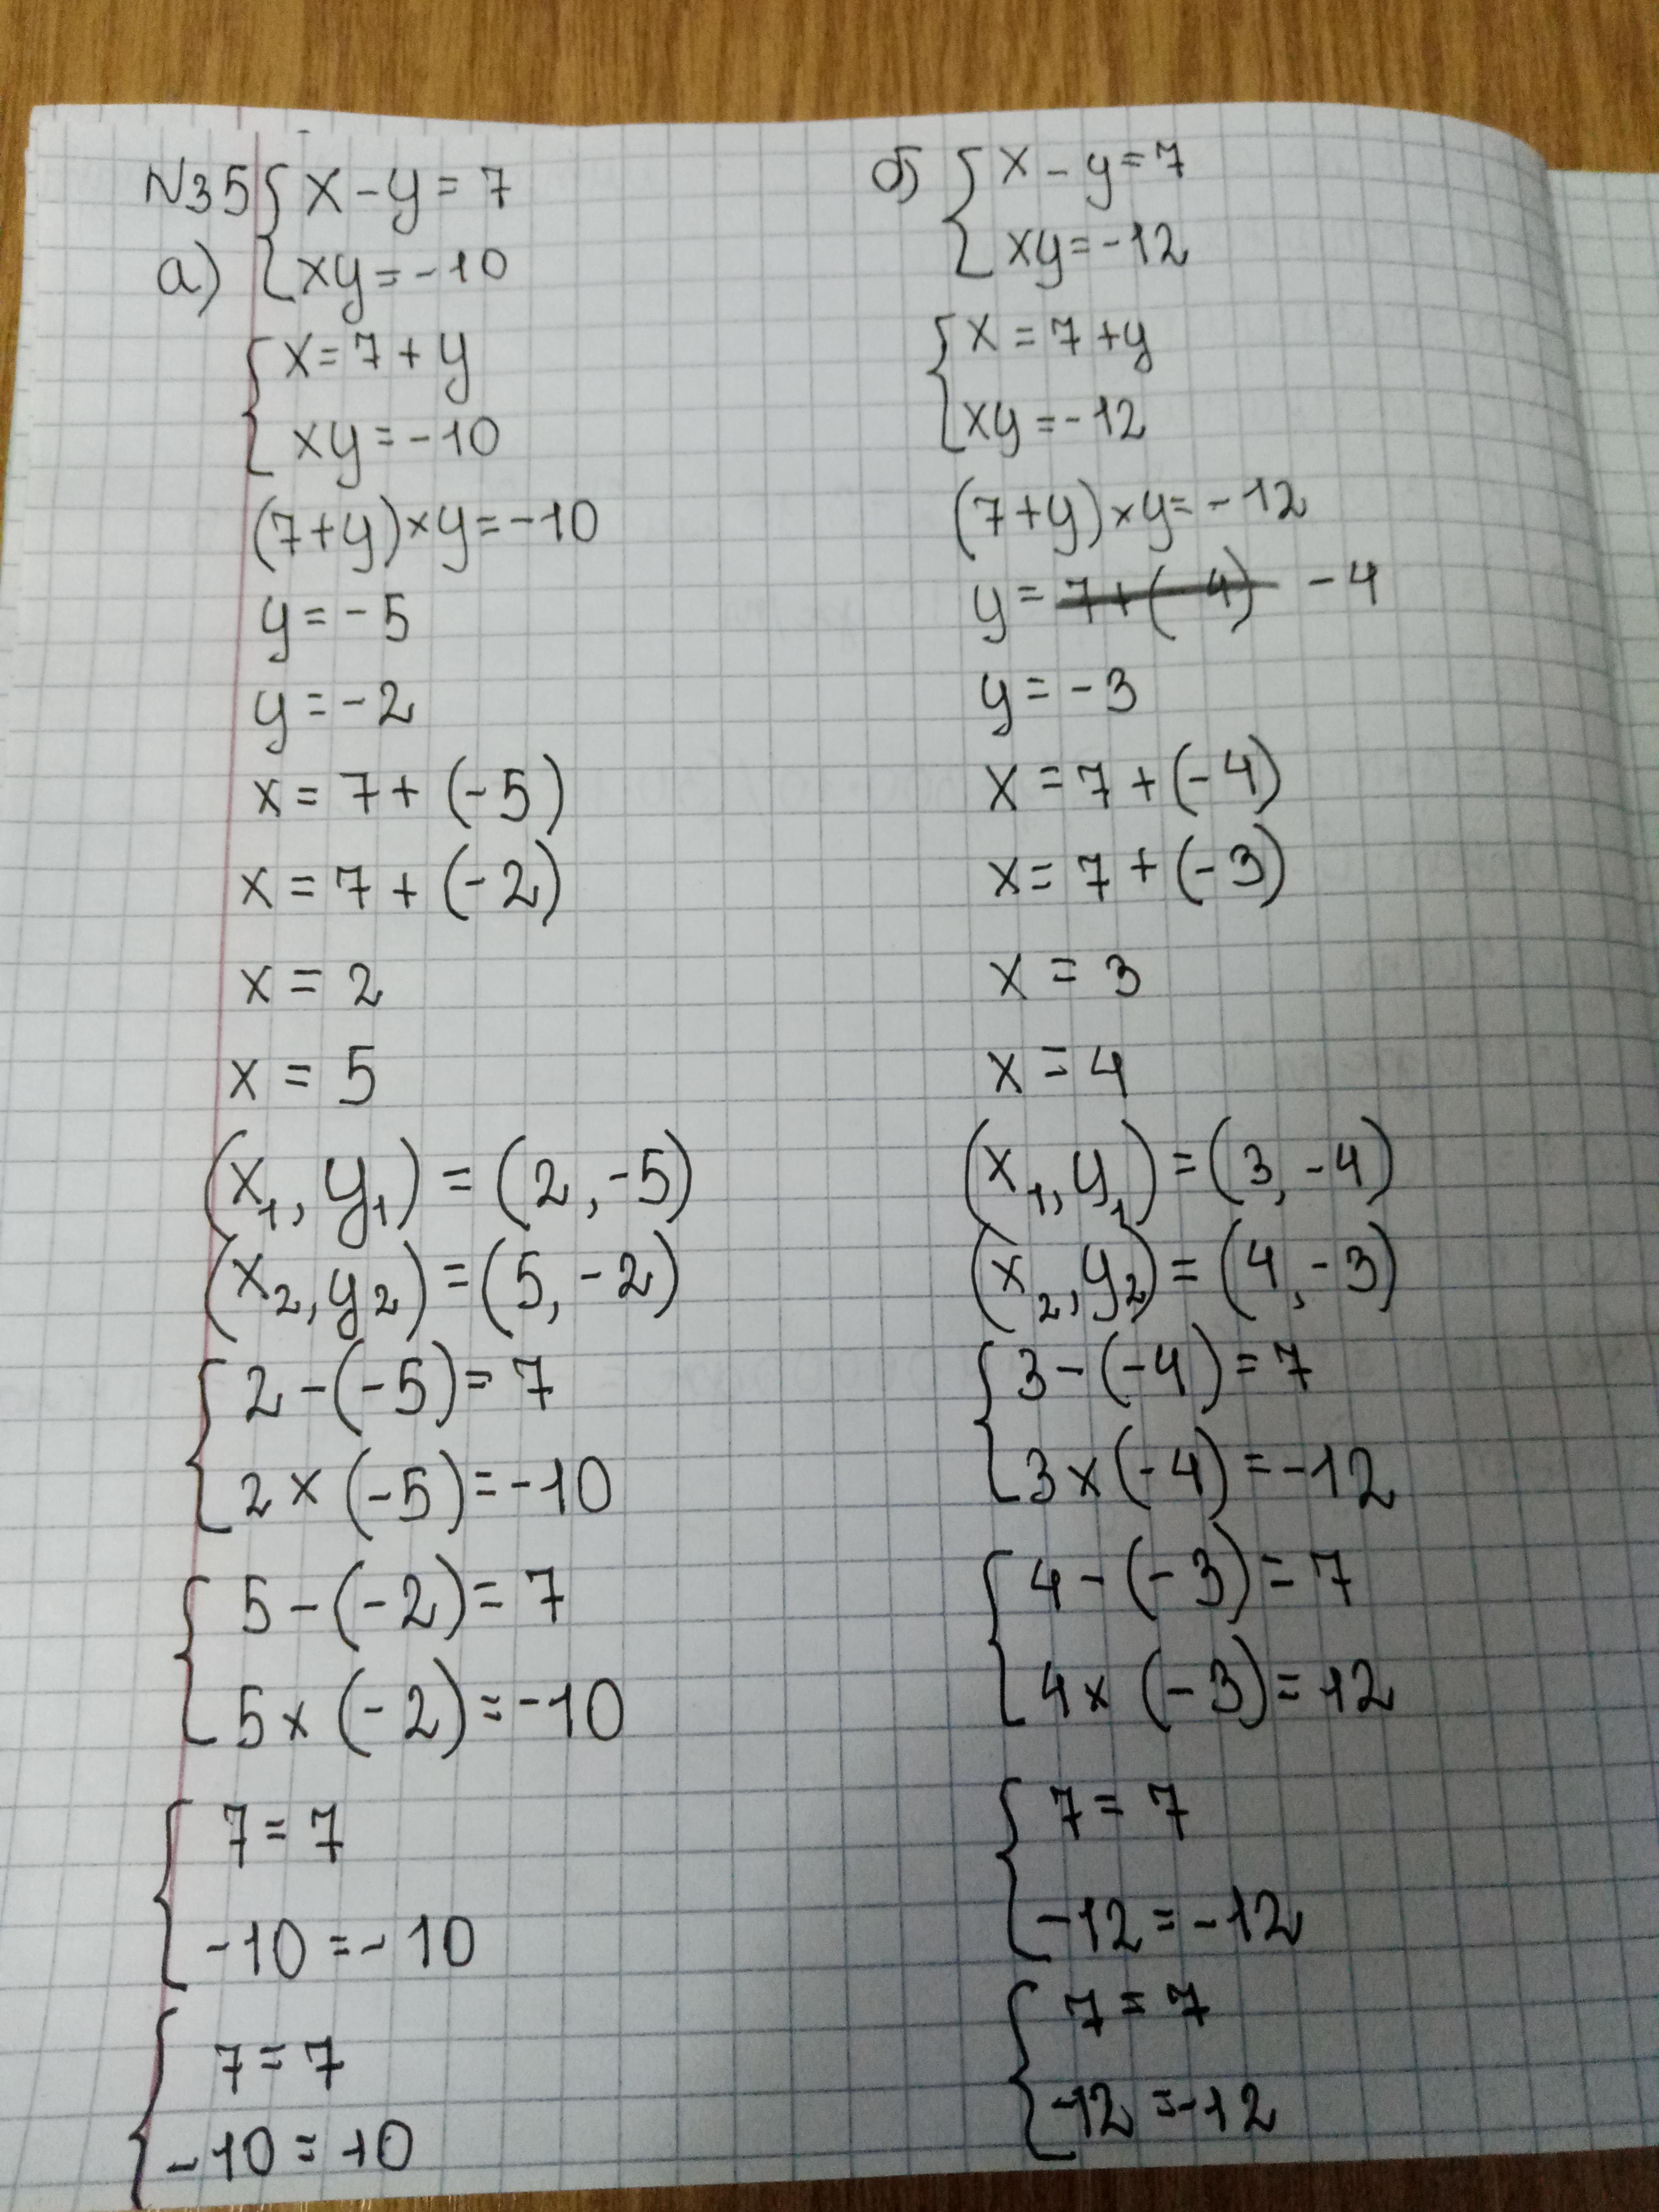 N35 { x - y = 7
а) { xy = -10
{ x = 7 + y
{ xy = -10
(7+y) × y = -10
y = -5
y = -2
x = 7 + (-5)
x = 7 + (-2)
x = 2
x = 5
(x₁, y₁) = (2, -5)
(x₂, y₂) = (5, -2)
{ 2 - (-5) = 7
{ 2 × (-5) = -10
{ 5 - (-2) = 7
{ 5 × (-2) = -10
{ 7 = 7
{ -10 = -10
{ 7 = 7
{ -10 = 10
б) { x - y = 7
{ xy = -12
{ x = 7 + y
{ xy = -12
(7+y) × y = -12
y = 7+(-4) -4
y = -3
x = 7 + (-4)
x = 7 + (-3)
x = 3
x = 4
(x₁, y₁) = (3, -4)
(x₂, y₂) = (4, -3)
{ 3 - (-4) = 7
{ 3 × (-4) = -12
{ 4 - (-3) = 7
{ 4 × (-3) = 12
{ 7 = 7
{ -12 = -12
{ 7 = 7
{ -12 = -12